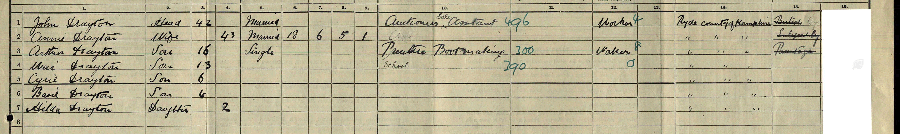 1 John Drayton Head 42 Married Auctioneers Assistant 496 Worker Ryde county of Hampshire
2 Annie Drayton Wife 43 Married 18 6 5 1 " " " "
3 Arthur Drayton Son 16 Single Bootmaking 300 Worker " " " "
4 Drayton Son 13 School 390 0 " " " "
5 Cyril Drayton Son 6 " " " "
6 Basil Drayton Son 4 " " " "
7 Hilda Drayton Daughter 2 " " " "
8